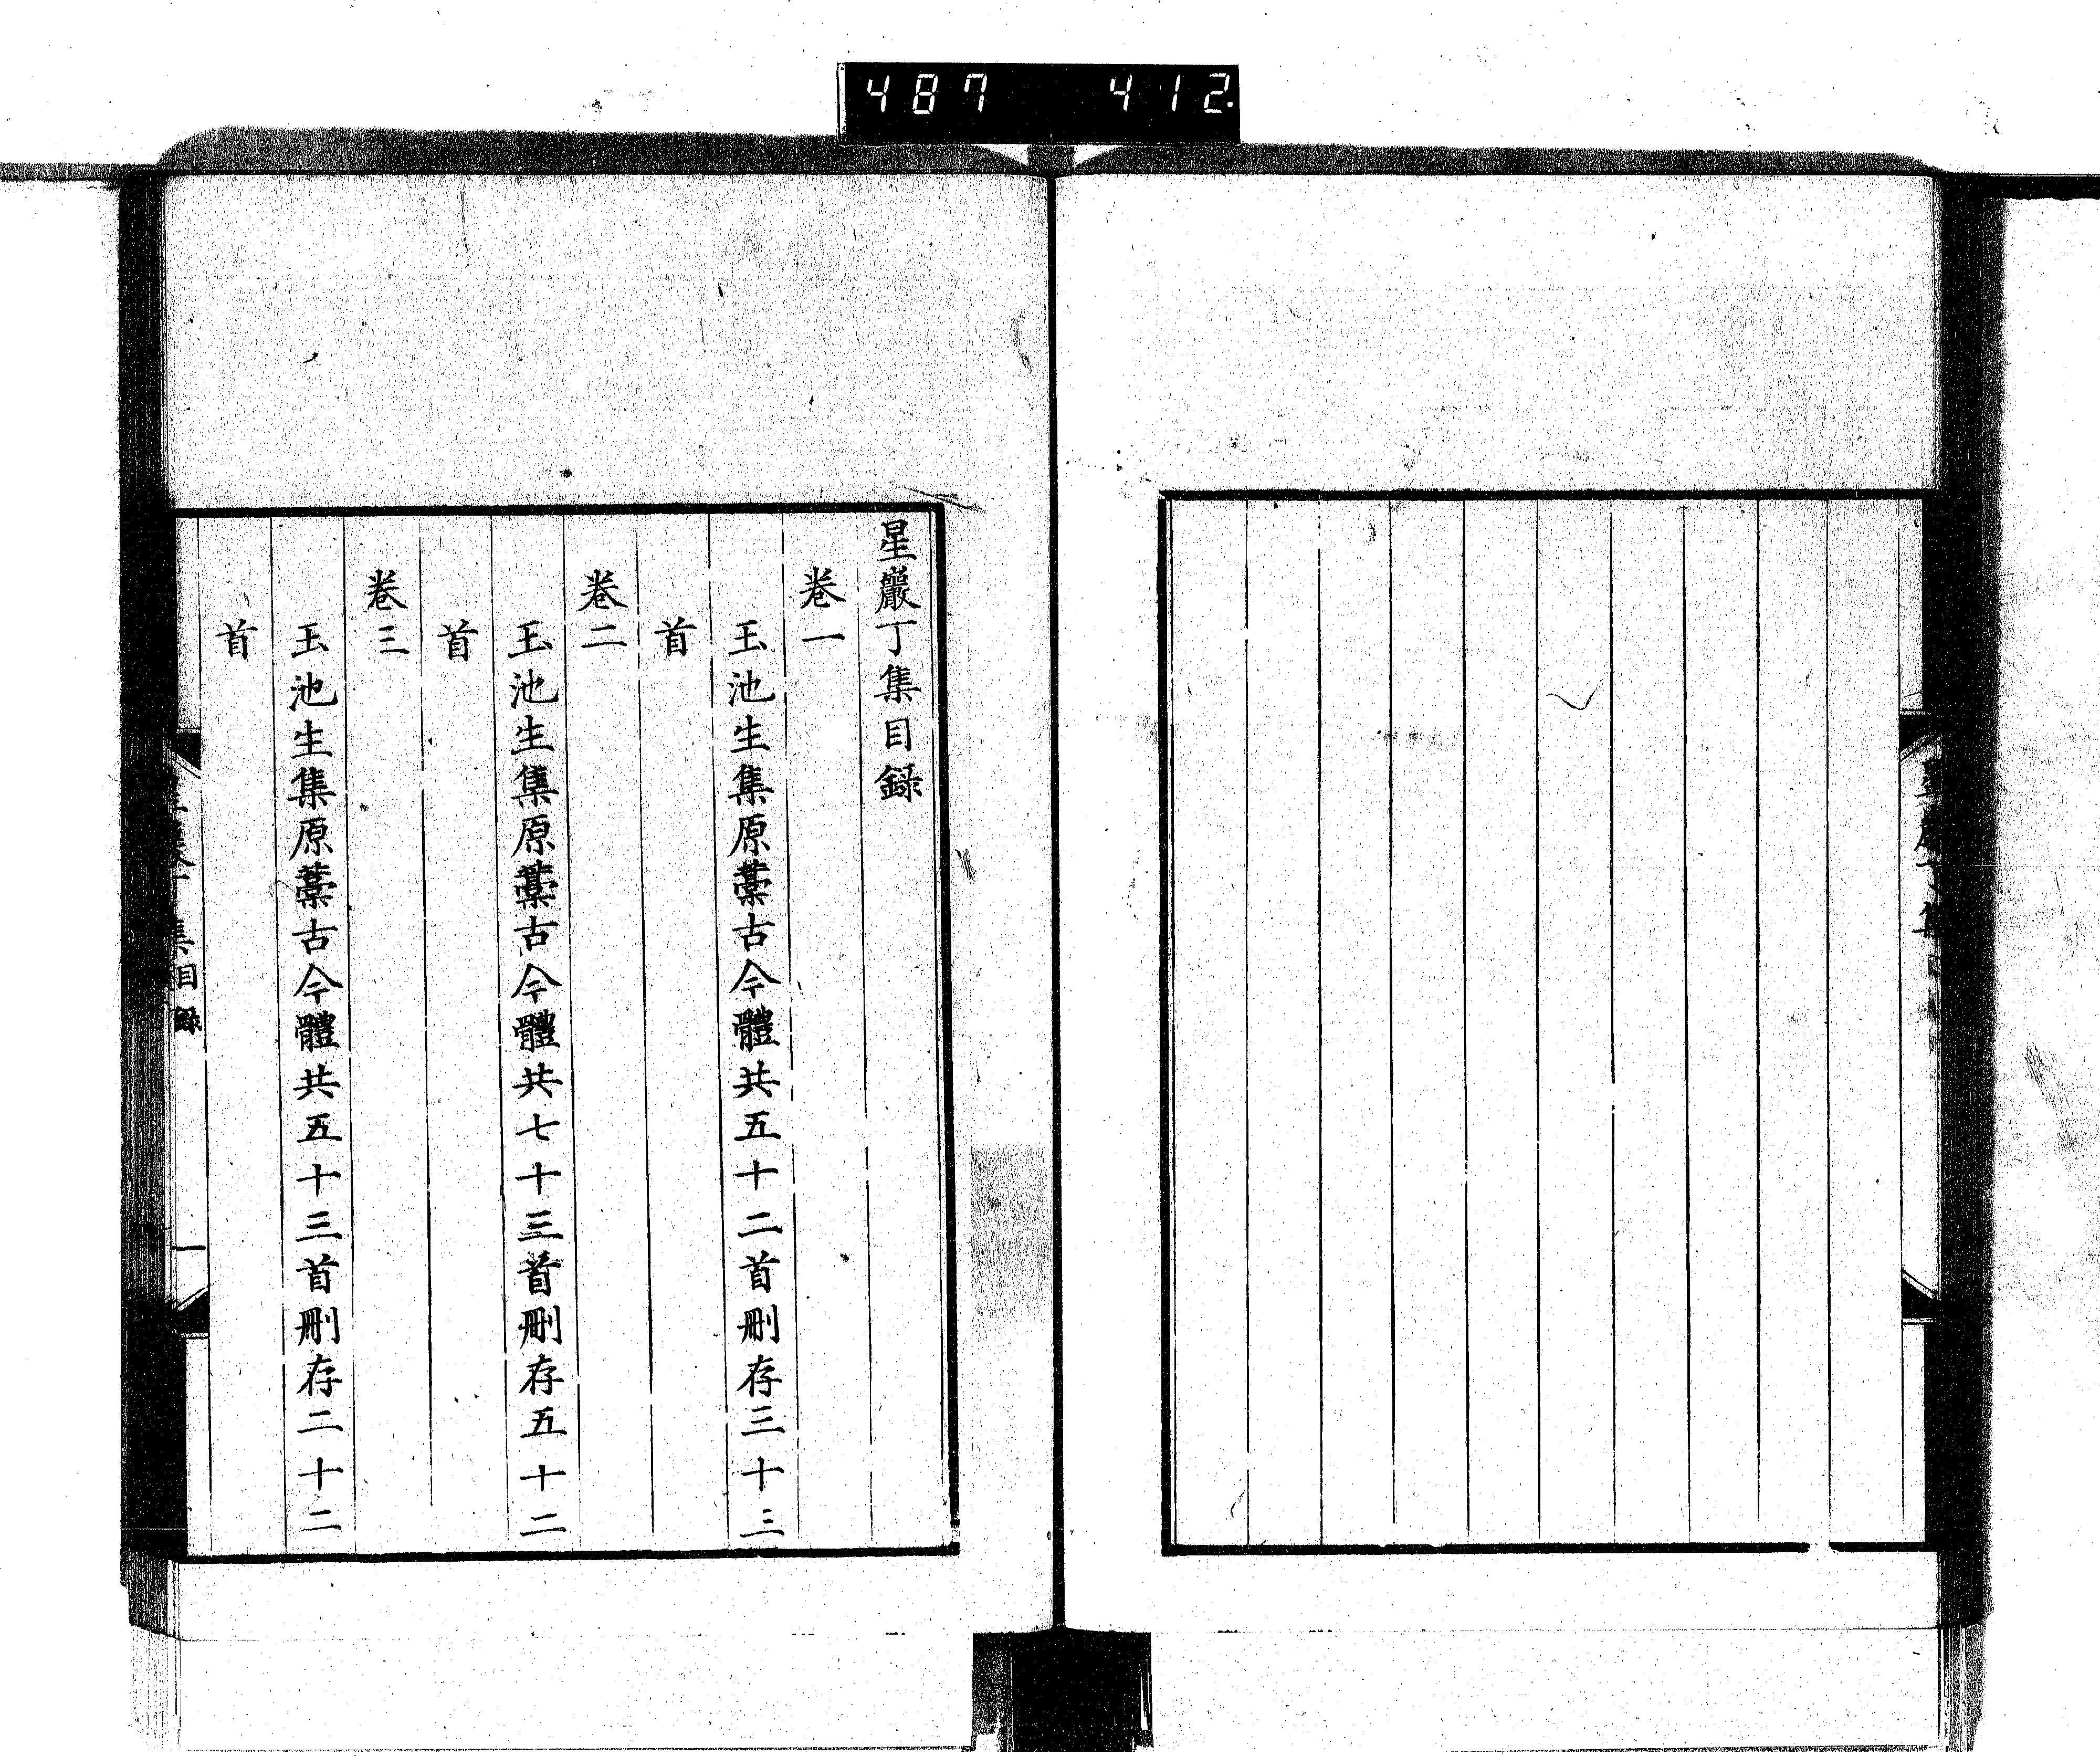 487 412.
星巖丁集目錄
卷一
玉池生集原藁古今體共五十二首刪存三十三
首
卷二
玉池生集原藁古今體共七十三首刪存五十二
首
卷三
玉池生集原藁古今體共五十三首刪存二十二
首
集目錄
一